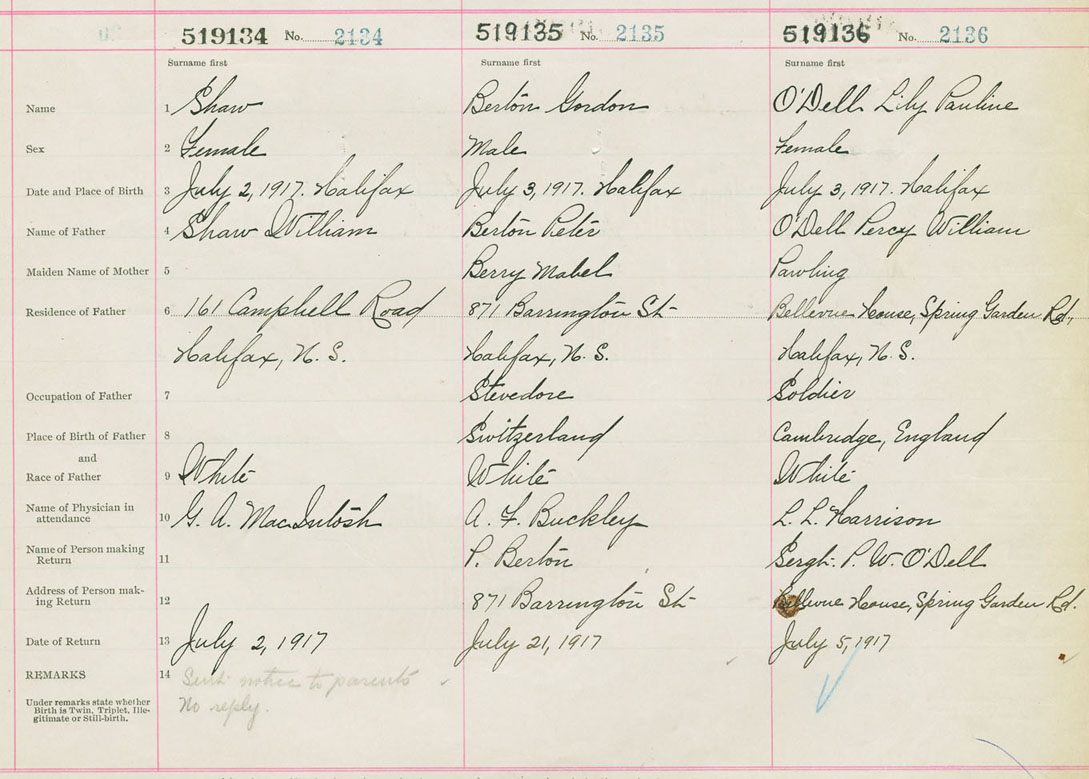 519134 No. 2134 519135 No. 2135 519136 No. 2136
Surname first Surname first Surname first
Name 1 Shaw Berton Gordon O'Dell Lily Pauline
Sex 2 Female Male Female
Date and Place of Birth 3 July 2, 1917. Halifax July 3, 1917. Halifax July 3, 1917. Halifax
Name of Father 4 Shaw William Berton Peter O'Dell Percy William
Maiden Name of Mother 5 Berry Mabel Pawling
Residence of Father 6 161 Campbell Road 871 Barrington St. Bellevue House, Spring Garden Rd.,
Halifax, N. S. Halifax, N. S. Halifax, N. S.
Occupation of Father 7 Stevedore Soldier
Place of Birth of Father 8 Switzerland Cambridge, England
and
Race of Father 9 White White White
Name of Physician in
attendance 10 G. A. MacIntosh A. F. Buckley L. L. Harrison
Name of Person making
Return 11 P. Berton Sergt. P. W. O'Dell
Address of Person mak-
ing Return 12 871 Barrington St. Bellevue House, Spring Garden Rd.
Date of Return 13 July 2, 1917 July 21, 1917 July 5, 1917
REMARKS 14 Sent notice to parents
No reply.
Under remarks state whether
Birth is Twin, Triplet, Ille-
gitimate or Still-birth.